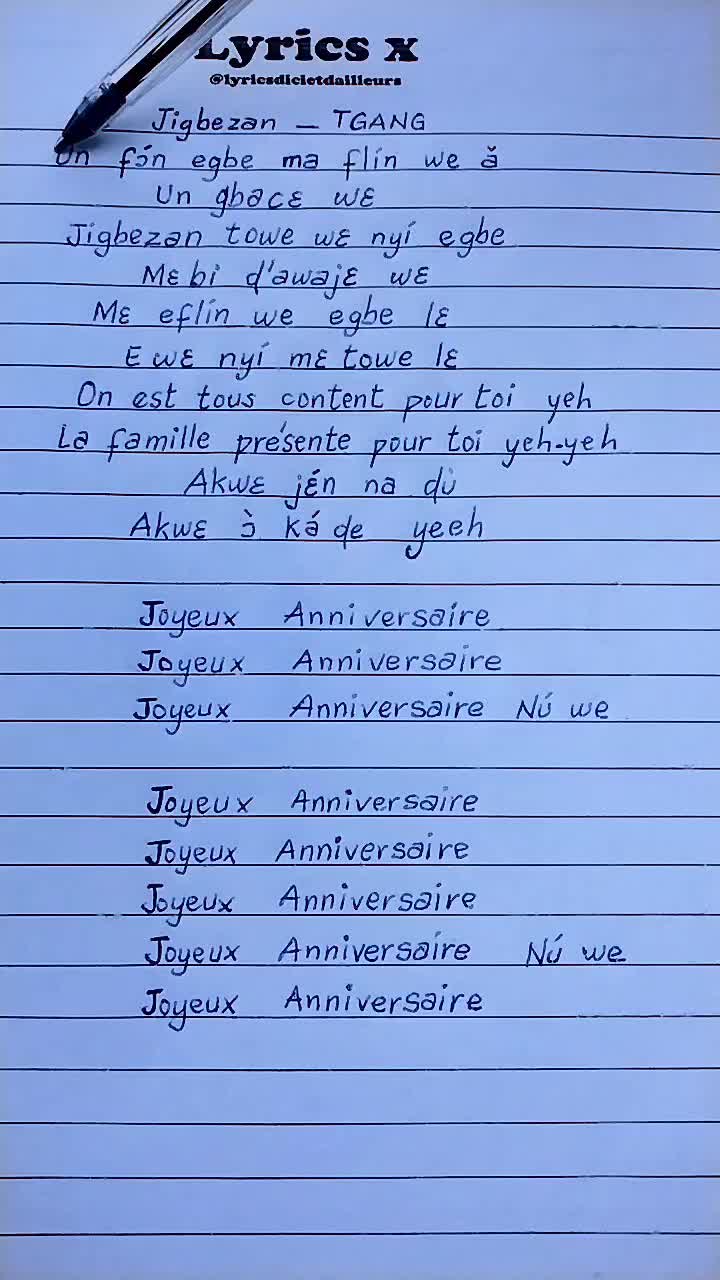 Lyrics x
@lyricsdicietdailleurs
Jigbezan – TGANG
Un fɔ́n egbe ma flín we ǎ
Un gbacɛ wɛ
Jigbezan towe wɛ nyí egbe
Mɛ bi d'awajɛ wɛ
Mɛ eflín we egbe lɛ
E wɛ nyí mɛ towe lɛ
On est tous content pour toi yeh
La famille présente pour toi yeh-yeh
Akwɛ jɛ́n na dù
Akwɛ ɔ̀ ká de yeeh
Joyeux Anniversaire
Joyeux Anniversaire
Joyeux Anniversaire Nú we
Joyeux Anniversaire
Joyeux Anniversaire
Joyeux Anniversaire
Joyeux Anniversaire Nú we
Joyeux Anniversaire